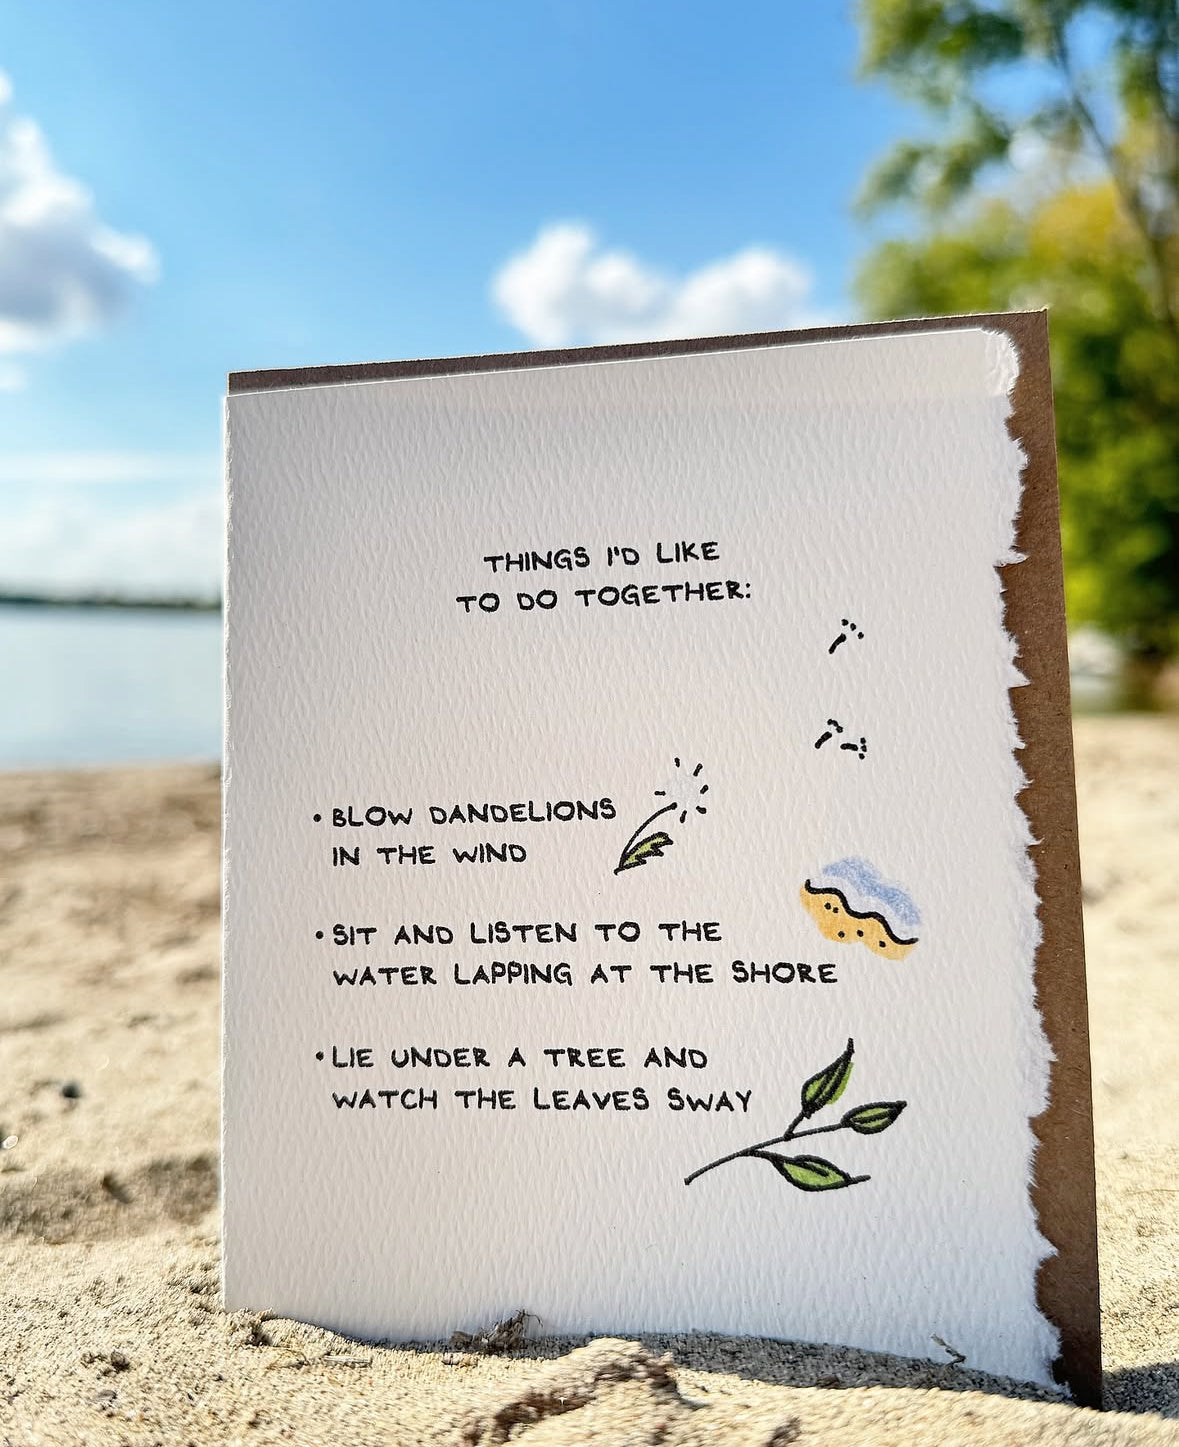 THINGS I'D LIKE
TO DO TOGETHER:
• BLOW DANDELIONS
IN THE WIND
• SIT AND LISTEN TO THE
WATER LAPPING AT THE SHORE
• LIE UNDER A TREE AND
WATCH THE LEAVES SWAY